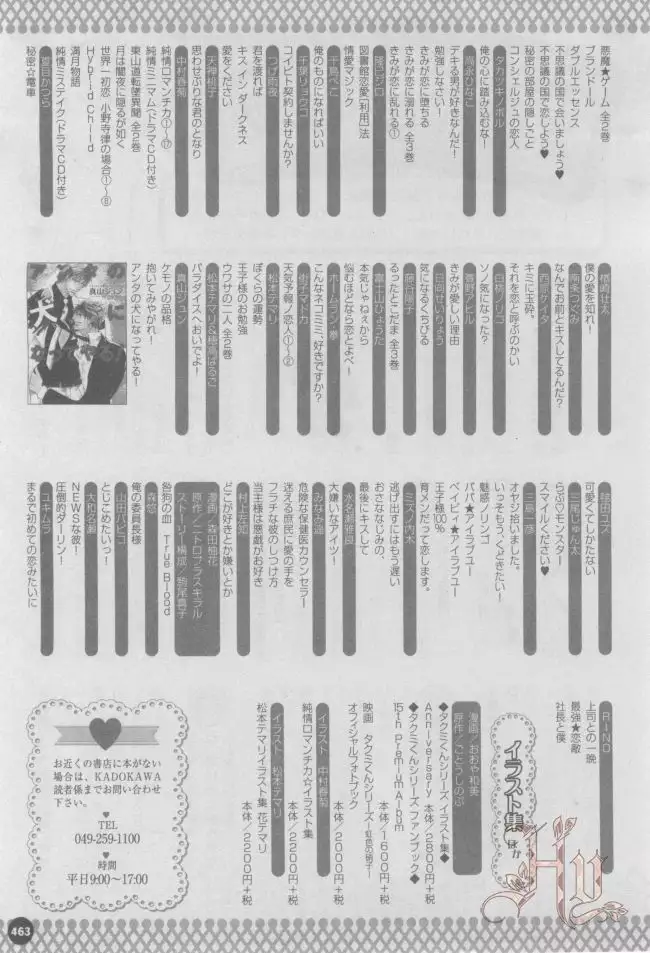 悪魔★ゲーム 全2巻
ブランドール
ダブルエッセンス
不思議の国で会いましょう♥
不思議の国で恋しよう♥
秘密の部屋の隠しごと
コンシェルジュの恋人
タカツキノボル
俺の心に踏み込むな!
高永ひなこ
デキる男が好きなんだ!
勉強しなさい!
きみが恋に堕ちる
きみが恋に溺れる 全3巻
きみが恋に乱れる①
図書館恋愛[利用]法
情愛マジック
千島ぺこ
俺のものになればいい
千葉リョウコ
コイビト契約しませんか?
つげ雨夜
君を渡れば
キス イン ダークネス
愛をください
天禅桃子
思わせぶりな君のとなり
中村春菊
純情ロマンチカ①~⑰
純情ミニマム(ドラマCD付き)
東山道転墜異聞 全5巻
月は闇夜に隠るが如く
世界一初恋 小野寺律の場合①~⑧
Hybrid Child
満月物語
純情ミステイク(ドラマCD付き)
夏目かつら
秘密☆電車
楢崎壮太
僕の愛を知れ!
南条つぐみ
なんでお前とキスしてるんだ?
西原ケイタ
キミに玉砕。
それを恋と呼ぶのかい
白桃ノリコ
ソノ気になった?
蓮野アヒル
きみが愛しい理由
日向せいりょう
気になるくちびる
藤谷陽子
るったとこだま 全3巻
富士山ひょうた
本気じゃねぇから
悩むほどなら恋とよべ!
ホームラン・拳
こんなネコミミ、好きですか?
街子マドカ
天気予報ノ恋人①~②
松本テマリ
ぼくらの運勢
王子様のお勉強
ウワサの二人 全2巻
真山ジュン
パラダイスへおいでよ!
ケモノの品格
抱いてみやがれ!
アンタの犬になってやる!
真山ジュン
可愛くてしかたない
三尾じゅん太
らぶ♡モンスター
スマイルください♥
三島一彦
オヤジ拾いました。
いっそもう、くどきたい!
魅惑ノリンゴ
パパ★アイラブユー
ベイビィ★アイラブユー
王子様100%
育メンだって恋します。
ミズノ内木
逃げ出すにはもう遅い
おさななじみの、
最後にキスして
水名瀬雅良
大嫌いなアイツ!
みなみ遥
危険な保健医カウンセラー
迷える庶民に愛の手を
フラチな彼のしつけ方
当主様は悪戯がお好き
村上左知
どこが好きとか嫌いとか
漫画/森田柚花
原作/ニトロプラスキラル
咎狗の血 True Blood
森悠
俺の委員長様
山田パピコ
とじこめたいっ!
大和名瀬
NEWSな彼!
圧倒的ダーリン!
ユキムラ
まるで初めての恋みたいに
RINO
上司との一晩
最強★恋敵
社長と僕
イラスト集ほか
漫画/おおや和美
原作/ごとうしのぶ
◆タクミくんシリーズ イラスト集◆
Anniversary 本体/2800円+税
◆タクミくんシリーズ ファンブック◆
15th Premium Album
本体/1600円+税
映画 タクミくんシリーズー虹色の硝子ー
オフィシャルフォトブック
本体/2000円+税
イラスト 中村春菊
純情ロマンチカ☆イラスト集
本体/2200円+税
イラスト 松本テマリ
松本テマリイラスト集 花テマリ
本体/2200円+税
お近くの書店に本がない
場合は、KADOKAWA
読者係までお問い合わせ
下さい。
TEL
049-259-1100
時間
平日9:00~17:00
Hy
463